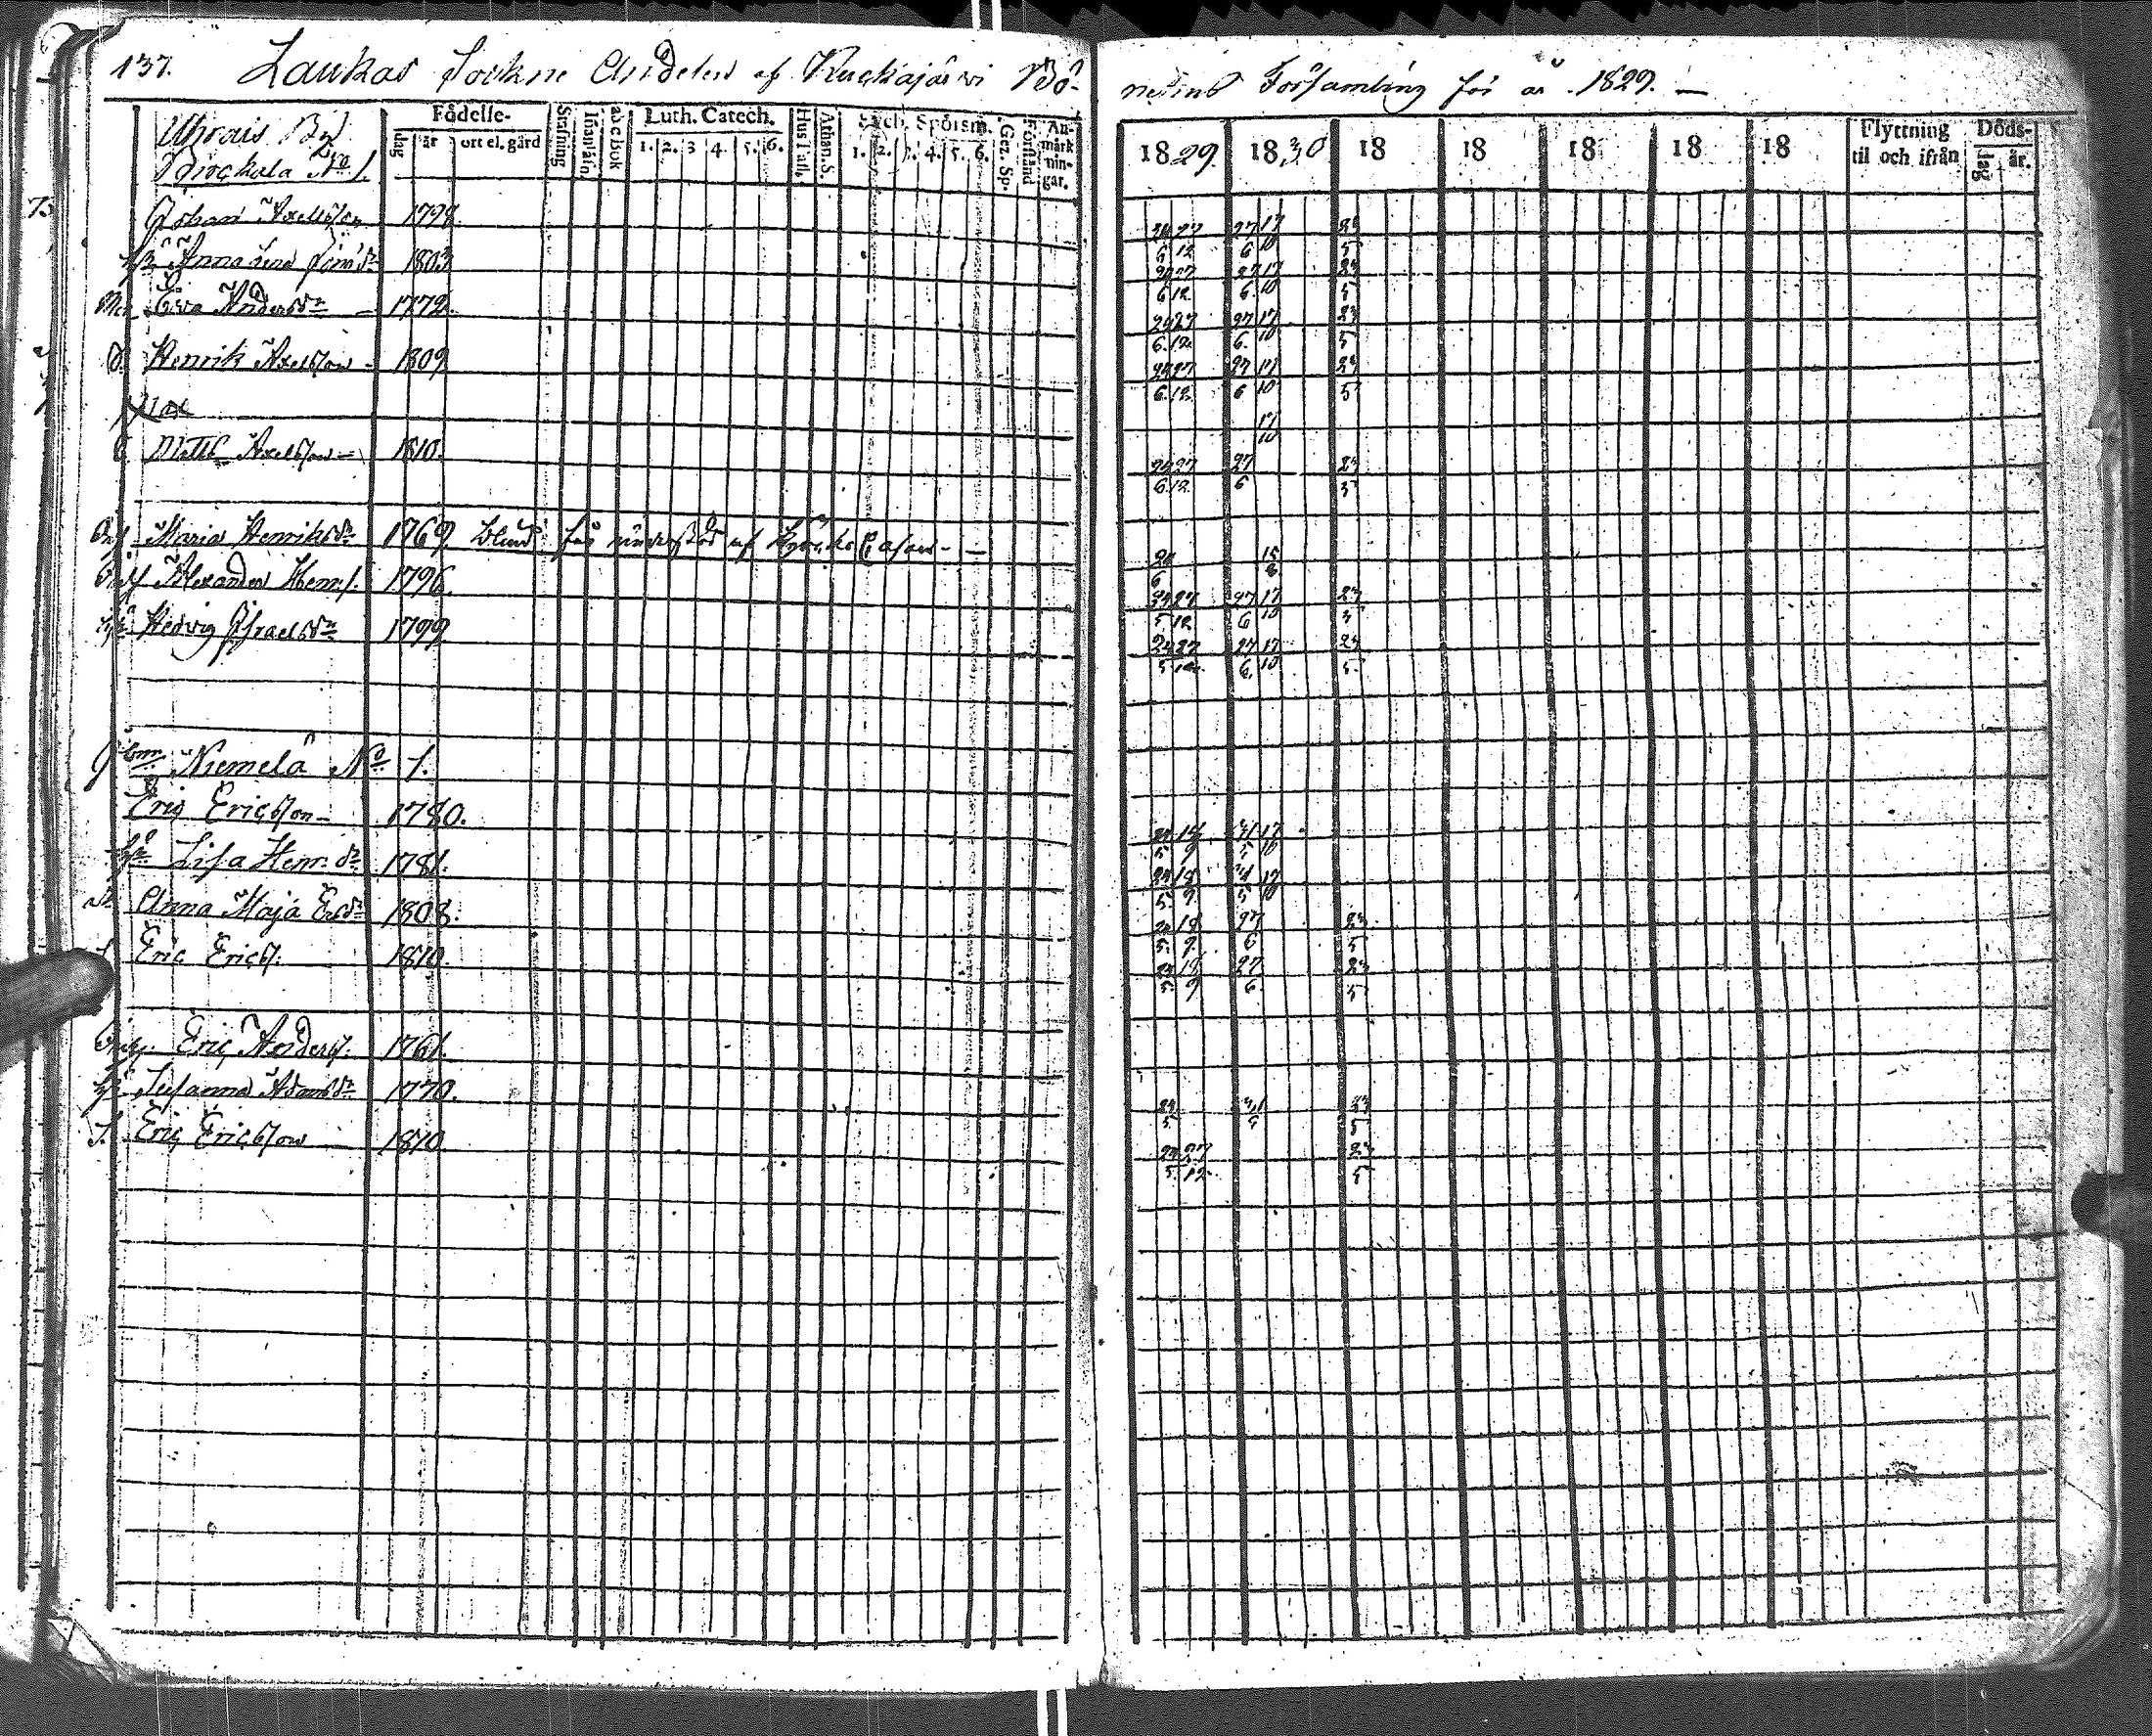 137. Laukas Sockne Andelen af Kuckajärwi Bö-
nehus Församling för år 1829. —
Uhrais By
Pirckala N:ro 1.
Födelse-
dag år ort el. gård
Stafning
Innanläsn.
a b c bok
Luth. Catech.
1. 2. 3 4. 5. 6.
Hus Tafl.
Athan. S.
Sveb. Spörsm.
1. 2. 3. 4. 5. 6.
Gez. Sp.
Förstånd
An-
märk
nin-
gar.
1829. 1830 18 18 18 18 18
Flyttning
til och ifrån
Döds-
dag år.
Johan Axelsson 1798 24 27 27 17 23
6 12 6 10 5
Anna Lena 1803 24 27 27 17 23
6 12 6 10 5
Eva Andersdr 1772. 24 27 27 17 23
6. 12 6. 10 5
Henrik Axelsson 1809 24 27 27 17 23
6. 12 6 10 5
17
10
Matts Axelsson 1810. 24 27 27 23
6 12 6 5
Maria Henriksdr 1769 blind får understöd af Kyrcko Cassan —
24 15
6 8
Alexander Henr. 1796. 24 27 27 17 23
5 12 6 10 5
Hedvig Israelsdr 1799 24 27 27 17 23
5 12 6 10 5
Niemelä No 1.
Eric Ericsson 1780. 24 18 31 17
5 9 5 10
Lisa Henr. dr 1781. 24 18 31 17
5 9 5 10
Anna Maja Ersdr 1808. 24 18 27 23
5. 9. 6 5
Eric Erics. 1810. 24 18 27 23
5. 9 6. 5
Eric Anders. 1761.
Susanna Adamsdr 1770. 24 31 23
5 5 5
S. Eric Ericsson 1810 24 27 23
5 12 5